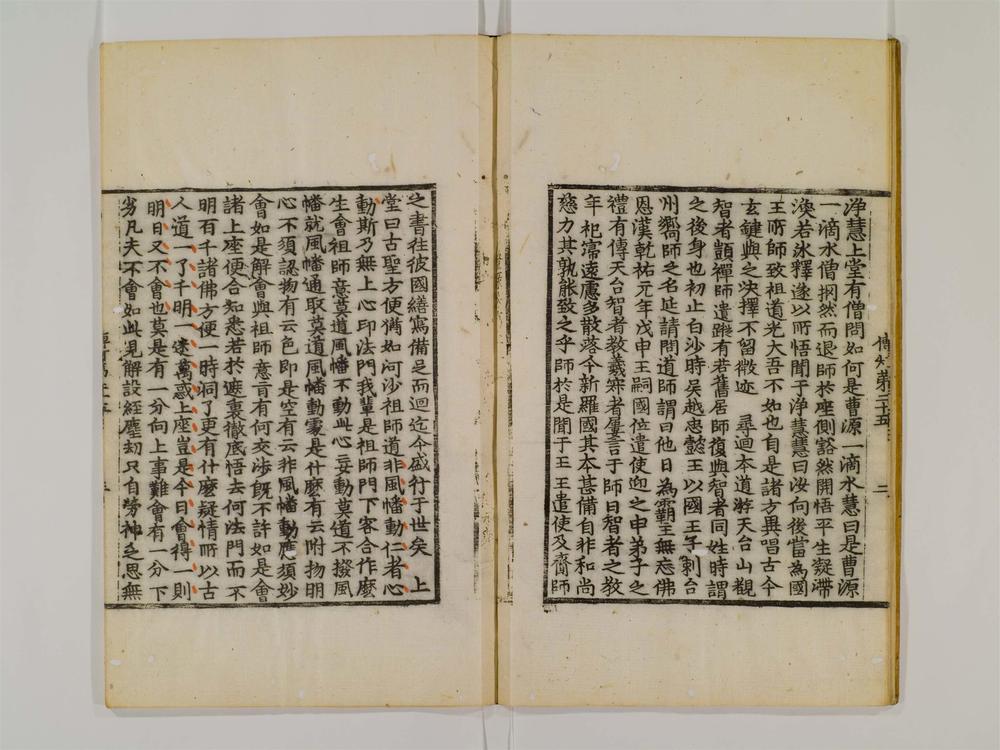 淨慧上堂有僧問如何是曹源一滴水慧曰是曹源
一滴水僧惘然而退師於座側豁然開悟平生凝滯
渙若冰釋遂以所悟聞于淨慧慧曰汝向後當為國
王所師致祖道光大吾不如也自是諸方異唱古今
玄鍵與之決擇不留微迹 尋迴本道游天台山觀
智者顗禪師遺蹤有若舊居師復與智者同姓時謂
之後身也初止白沙時吳越忠懿王以國王子刺台
州嚮師之名延請問道師謂曰他日為霸主無忘佛
恩漢乾祐元年戊申王嗣國位遣使迎之申弟子之
禮有傳天台智者教義寂者屢言于師曰智者之教
年祀寖遠慮多散落今新羅國其本甚備自非和尚
慈力其孰能致之乎師於是聞于王王遣使及齎師
之書往彼國繕寫備之而迴迄今盛行于世矣 上
堂曰古聖方便猶如河沙祖師道非風幡動仁者心
動斯乃無上心印法門我輩是祖師門下客合作麼
生會祖師意莫道風幡不動此心妄動莫道不撥風
幡就風幡通取莫道風幡動處是什麼有云附物明
心不須認物有云色即是空有云非風幡動應須妙
會如是解會與祖師意旨有何交涉旣不許如是會
諸上座便合知悉若於遮裏徹底悟去何法門而不
明有千諸佛方便一時洞了更有什麼疑情所以古
人道一了千明一迷萬惑上座豈是今日會得一則
明日又不會也莫是有一分向上事難會有一分下
劣凡夫不會如此見解設經塵劫只自勞神乏思無